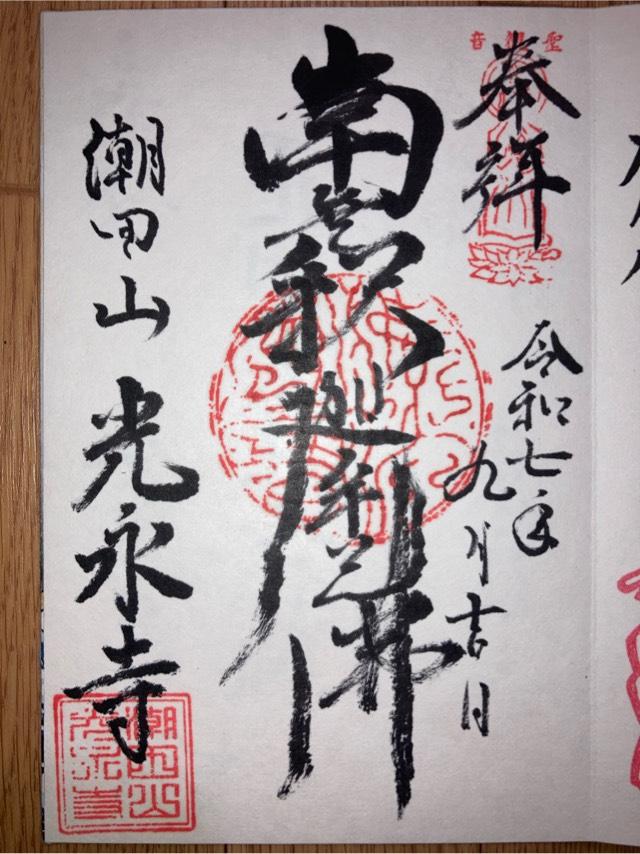 奉拝
令和七年
九月吉日
南無釈迦牟尼佛
潮田山
光永寺
潮田山
光永寺